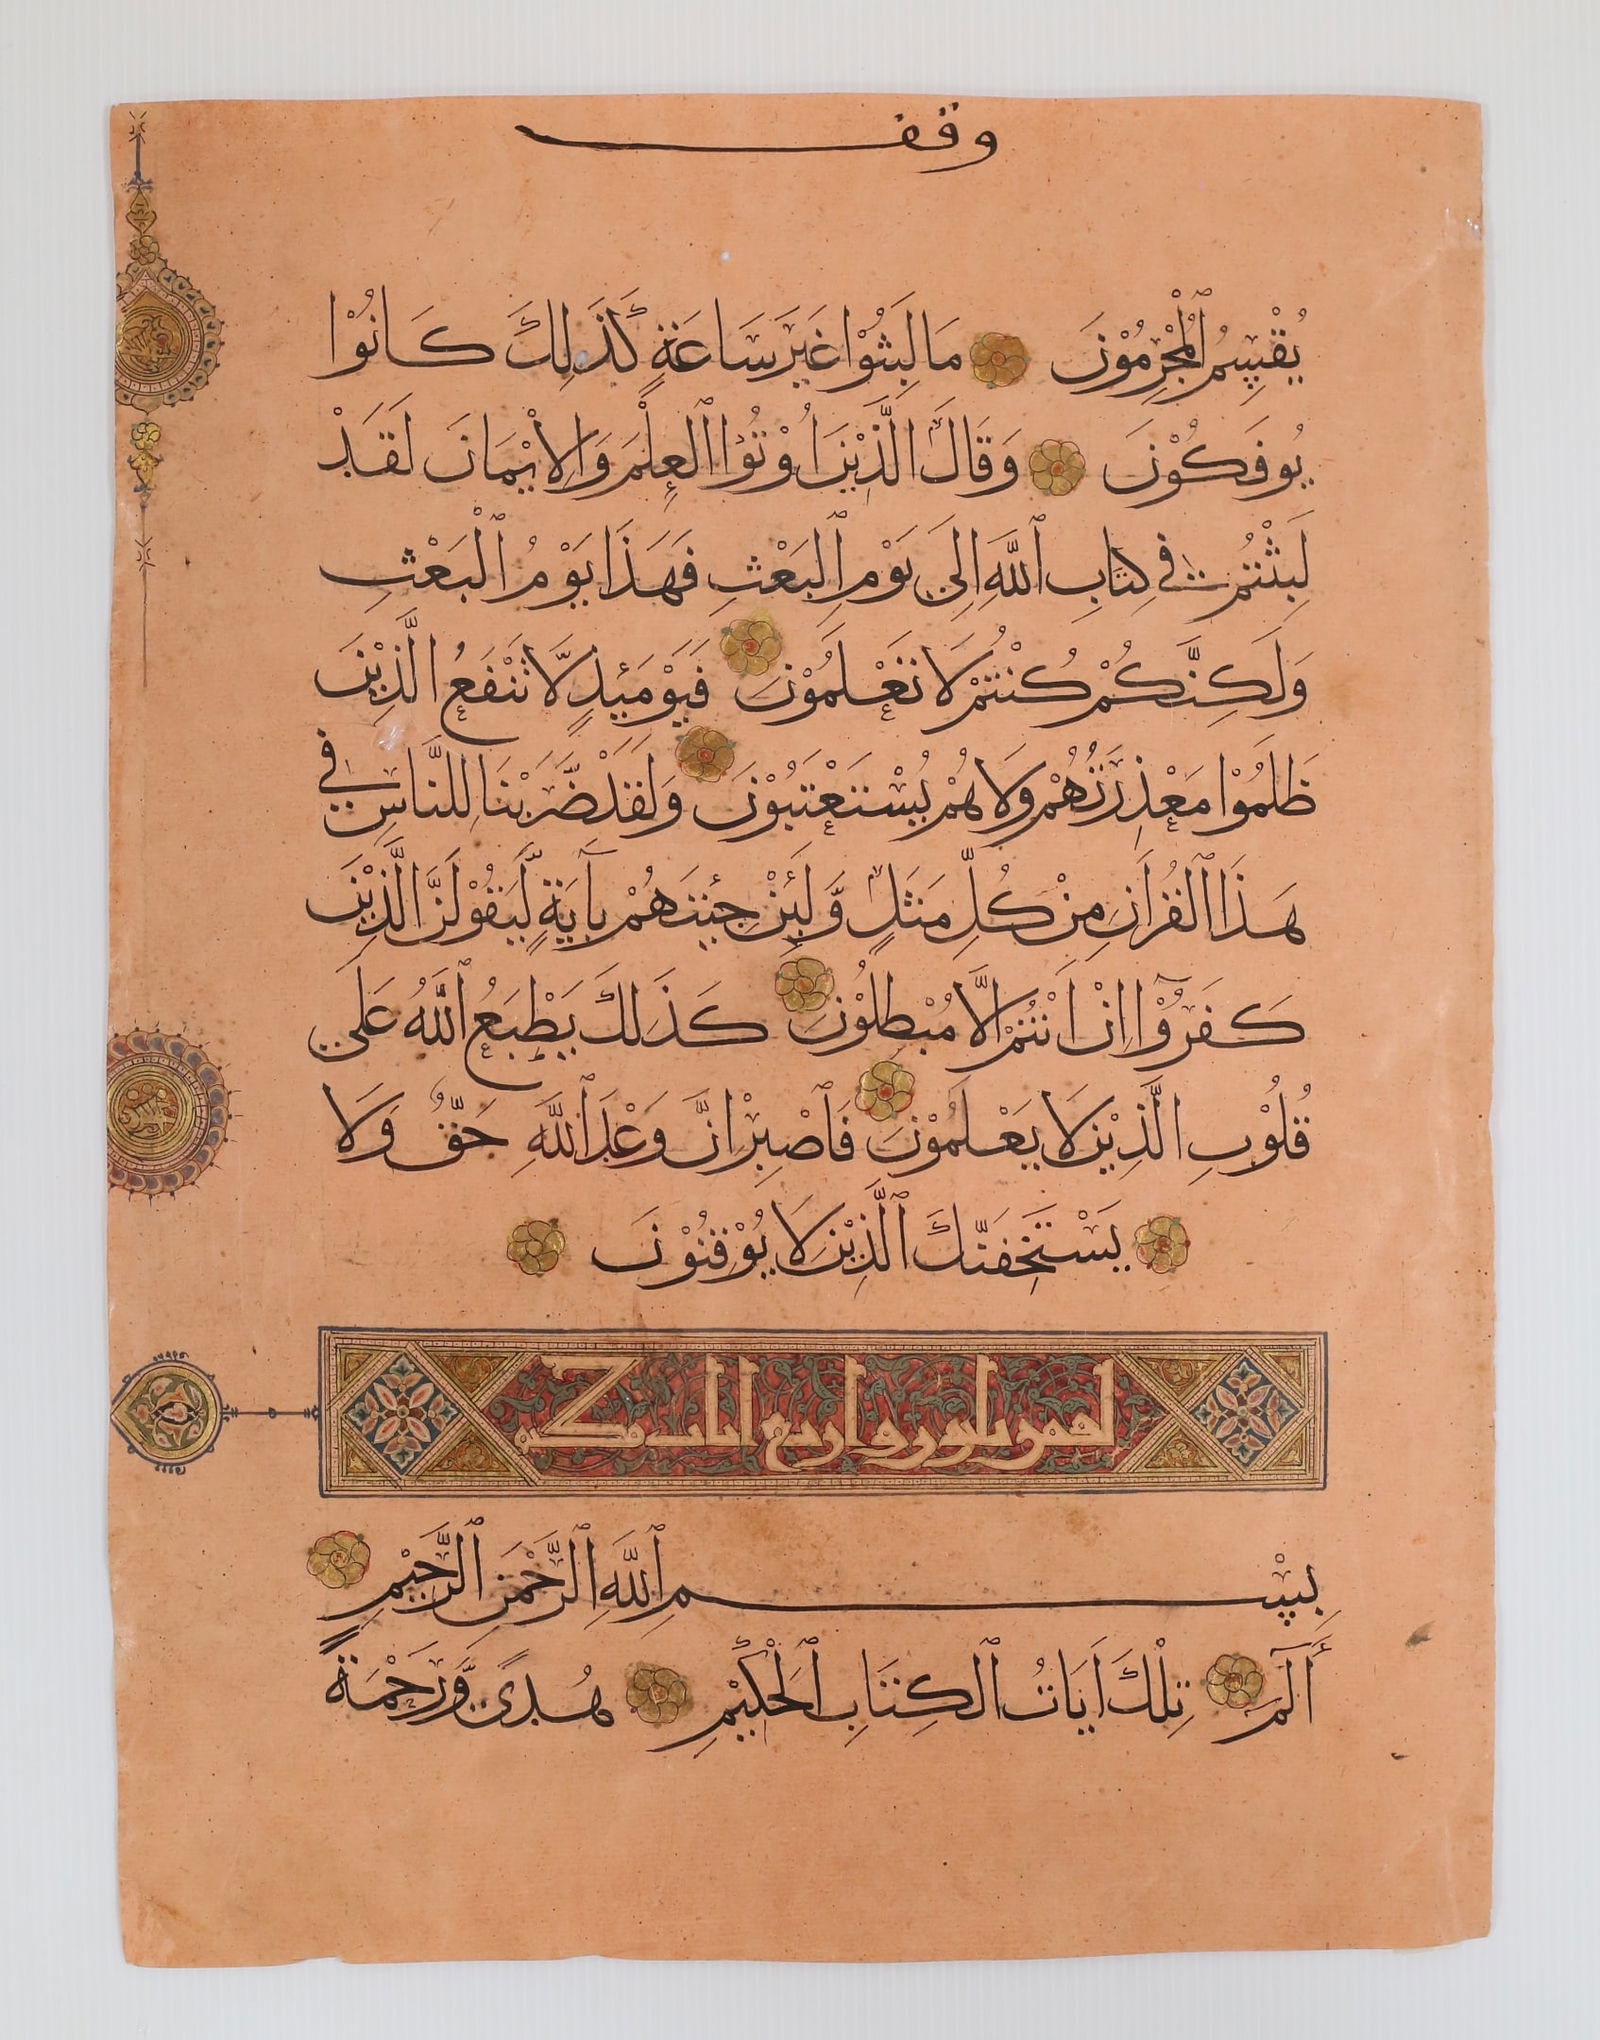 وقف
يُقْسِمُ ٱلْمُجْرِمُوْنَ مَا لَبِثُوْا غَيْرَ سَاعَةٍ كَذَلِكَ كَانُوْا
يُوفَكُوْنَ وَقَالَ الَّذِيْنَ اُوْتُوْا الْعِلْمَ وَالْاِيْمَانَ لَقَدْ
لَبِثْتُمْ فِي كِتَابِ ٱللَّهِ اِلَى يَوْمِ ٱلْبَعْثِ فَهَذَا يَوْمُ ٱلْبَعْثِ
وَلَكِنَّكُمْ كُنْتُمْ لَا تَعْلَمُوْنَ فَيَوْمَئِذٍ لَّا تَنْفَعُ الَّذِيْنَ
ظَلَمُوْا مَعْذِرَتُهُمْ وَلَا هُمْ يُسْتَعْتَبُوْنَ وَلَقَدْ ضَّرَبْنَا لِلنَّاسِ فِي
هَذَا ٱلْقُرْاَنِ مِنْ كُلِّ مَثَلٍ وَّلَئِنْ جِئْتَهُمْ بِآيَةٍ لَّيَقُوْلَنَّ الَّذِيْنَ
كَفَرُوْٓا اِنْ اَنْتُمْ اِلَّا مُبْطِلُوْنَ كَذَلِكَ يَطْبَعُ ٱللَّهُ عَلَى
قُلُوْبِ الَّذِيْنَ لَا يَعْلَمُوْنَ فَاصْبِرْ اِنَّ وَعْدَ ٱللَّهِ حَقٌّ وَلَا
يَسْتَخِفَّنَّكَ ٱلَّذِيْنَ لَا يُوْقِنُوْنَ
لقمن ثلثون واربع ايات مكية
بِسْمِ ٱللَّهِ ٱلرَّحْمَنِ ٱلرَّحِيْمِ
آلٓمٓ تِلْكَ اَيَاتُ ٱلْكِتَابِ ٱلْحَكِيْمِ هُدًى وَّرَحْمَةً